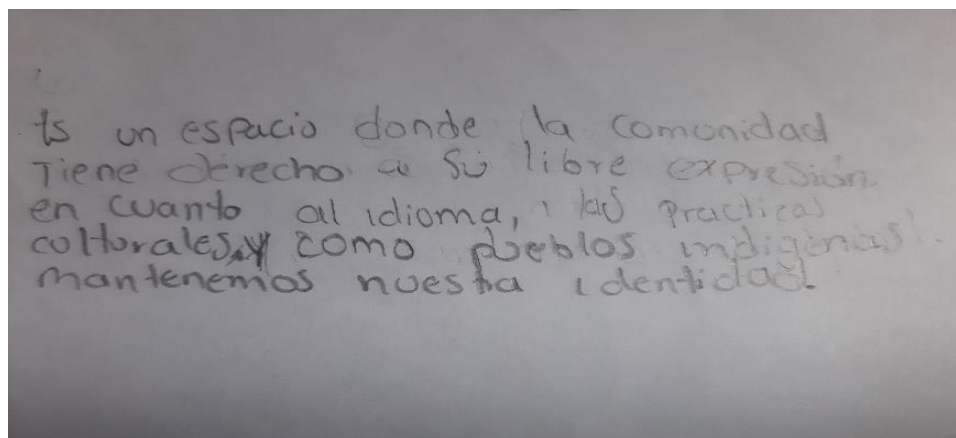 Es un espacio donde la comunidad
Tiene derecho a su libre expresión
en cuanto al idioma, las practicas
culturales, y como pueblos indigenas
mantenemos nuestra identidad.